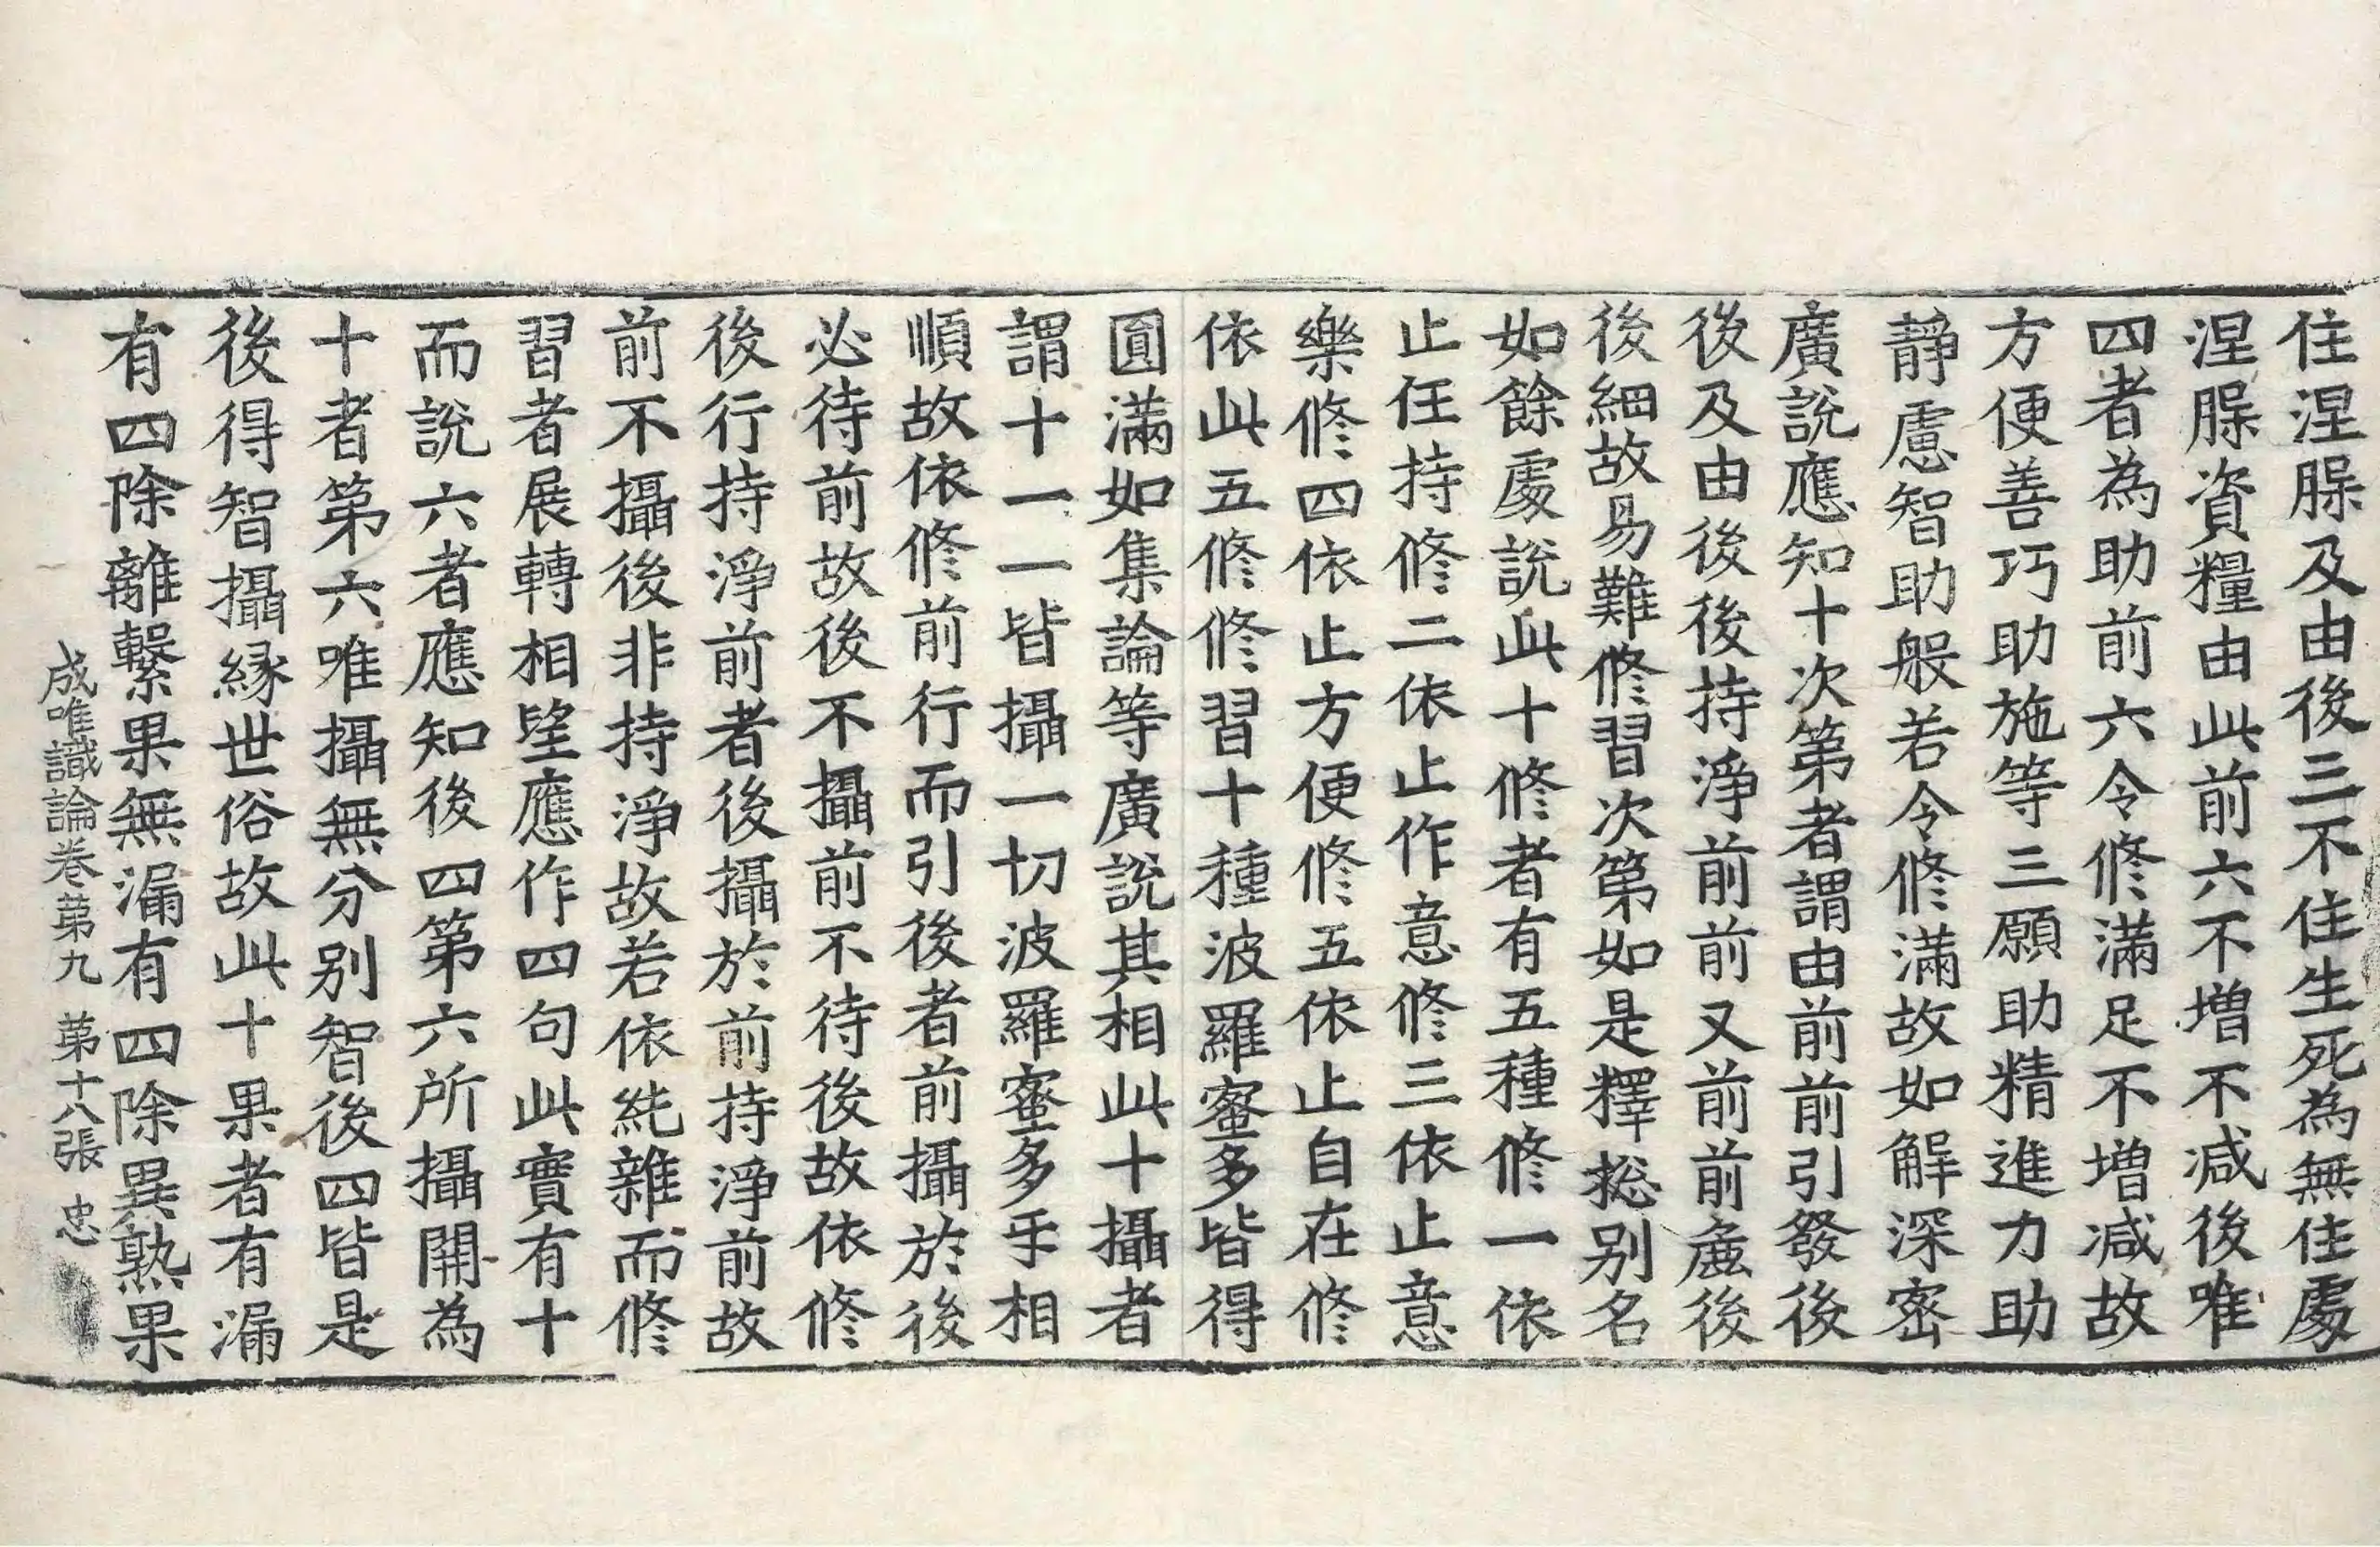 住涅槃及由後三不住生死為無住處
涅槃資糧由此前六不增不減後唯
四者為助前六令修滿足不增減故
方便善巧助施等三願助精進力助
靜慮智助般若令修滿故如解深密
廣說應知十次第者謂由前前引發後
後及由後後持淨前前又前前麁後
後細故易難修習次第如是釋捴别名
如餘處說此十修者有五種修一依
止任持修二依止作意修三依止意
樂修四依止方便修五依止自在修
依此五修修習十種波羅蜜多皆得
圓滿如集論等廣說其相此十攝者
謂十一一皆攝一切波羅蜜多乎相
順故依修前行而引後者前攝於後
必待前故後不攝前不待後故依修
後行持淨前者後攝於前持淨前故
前不攝後非持淨故若依純雜而修
習者展轉相望應作四句此實有十
而說六者應知後四第六所攝開為
十者第六唯攝無分别智後四皆是
後得智攝緣世俗故此十果者有漏
有四除離繫果無漏有四除異熟果
成唯識論卷第九 第十八張 忠